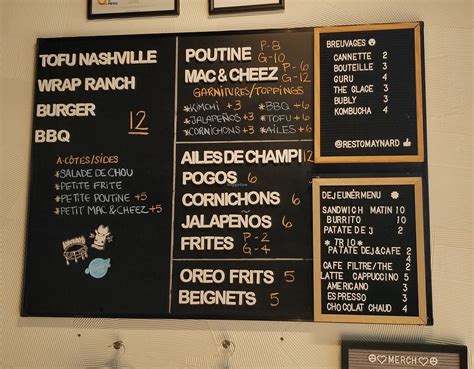 TOFU NASHVILLE
WRAP RANCH
BURGER
BBQ 12
A-CÔTÉS/SIDES
*SALADE DE CHOU
*PETITE FRITE
*PETITE POUTINE +5
*PETIT MAC&CHEEZ +5
POUTINE P-8 G-10
MAC&CHEEZ P-6 G-12
GARNITURES/TOPPINGS
*KIMCHI +3 *BBQ +6
*JALAPEÑOS +3 *TOFU +6
*CORNICHONS +3 *AILES +6
AILES DE CHAMPI 12
POGOS 6
CORNICHONS 6
JALAPEÑOS 6
FRITES P-2 G-4
OREO FRITS 5
BEIGNETS 5
BREUVAGES
CANNETTE 2
BOUTEILLE 3
GURU 4
THE GLACE 3
BUBLY 3
KOMBUCHA 4
@RESTOMAYNARD
DEJEUNÉRMENU
SANDWICH MATIN 10
BURRITO 10
PATATE DE J 2
* TRIO *
PATATE DEJ&CAFE 2
4
CAFE FILTRE/THE 2
LATTE CAPPUCCINO 5
AMERICANO 3
ESPRESSO 3
CHOCOLAT CHAUD 4
MERCH